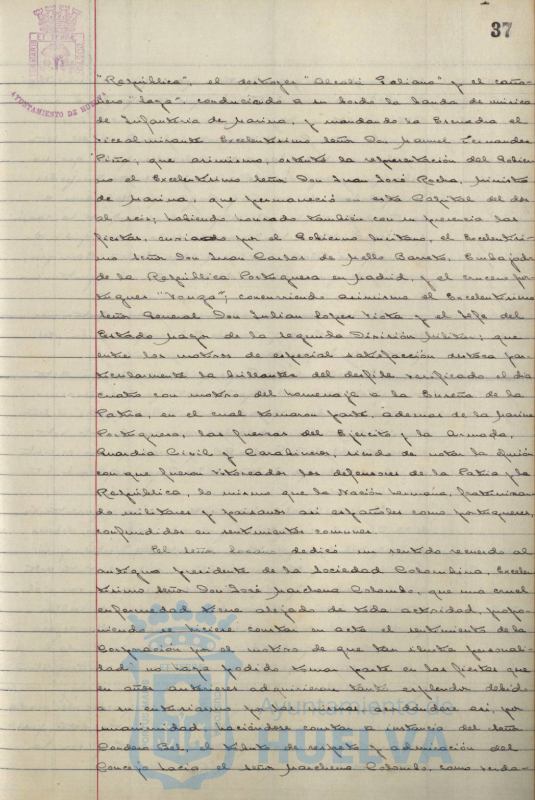 37
AYUNTAMIENTO DE HUELVA
"República", el destroyer "Alcalá Galiano" y el caño-
nero "Laya", conduciendo a su bordo la banda de música
de Infantería de Marina, y mandando la Escuadra el
vicealmirante Excelentísimo Señor Don Manuel Fernández
Piña; que asimismo, ostentó la representación del Gobier-
no el Excelentísimo Señor Don Juan José Rocha, Ministro
de Marina, que permaneció en esta Capital del dos
al seis; habiendo honrado también con su presencia las
fiestas, enviado por el Gobierno lusitano, el Excelentísi-
mo Señor Don Juan Carlos de Mello Barreto, Embajador
de la República Portuguesa en Madrid, y el crucero por-
tugués "Vouga"; concurriendo asimismo el Excelentísimo
Señor General Don Julián López Viota y el Jefe del
Estado Mayor de la segunda División Militar; que
entre los motivos de especial satisfacción destaca par-
ticularmente la brillantez del desfile verificado el día
cuatro con motivo del homenaje a la Enseña de la
Patria, en el cual tomaron parte, además de la Marina
Portuguesa, las fuerzas del Ejército y la Armada,
Guardia Civil y Carabineros, siendo de notar la
con que fueron vitoreados los defensores de la Patria y la
República, lo mismo que la Nación hermana, fraternizan-
do militares y paisanos así españoles como portugueses,
confundidos en sentimientos comunes.
El Señor Lozano dedicó un sentido recuerdo al
antiguo presidente de la Sociedad Colombina, Excelen-
tísimo Señor Don José Marchena Colombo, que una cruel
enfermedad tiene alejado de toda actividad, propo-
niendo se hiciese constar en acta el sentimiento de la
Corporación por el motivo de que tan ilustre personali-
dad no haya podido tomar parte en las fiestas que
en años anteriores adquirieron tanto esplendor debido
a su entusiasmo y acordándose así, por
unanimidad, haciéndose constar a instancia del Señor
Cordero Bel, el tributo de respeto y admiración del
Concejo hacia el Señor Marchena Colombo, como
Ayuntamiento de
HUELVA